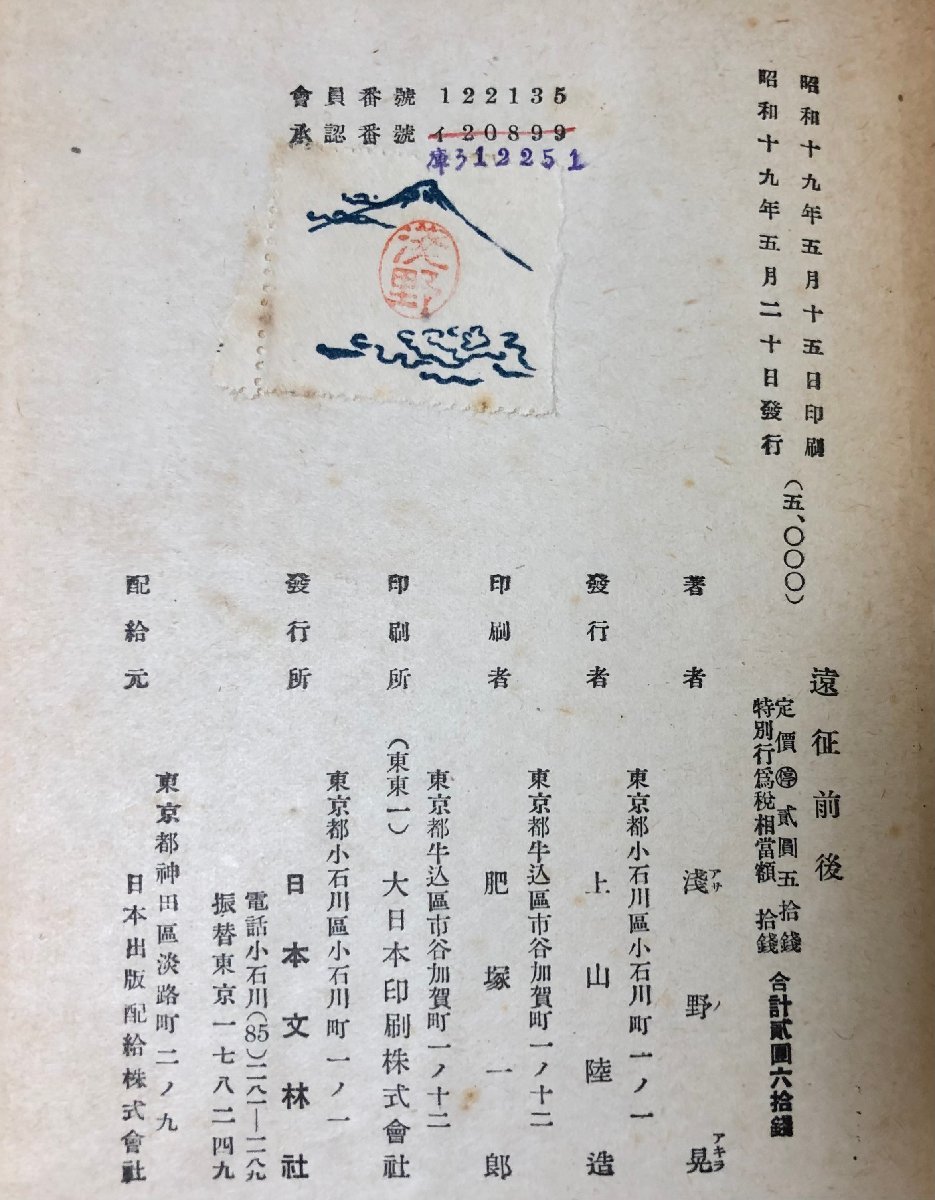 昭和十九年五月十五日印刷
昭和十九年五月二十日發行
（五、〇〇〇）
會員番號 122135
承認番號 イ20899
庫ラ312251
淺野
遠征前後
定價 ㊡ 貳圓五拾錢
特別行爲稅相當額 拾錢
合計貳圓六拾錢
著者 淺野晃
アサ ノ アキラ
東京都小石川區小石川町一ノ一
發行者 上山陸造
東京都牛込區市谷加賀町一ノ十二
印刷者 肥塚一郎
東京都牛込區市谷加賀町一ノ十二
印刷所 （東東一）大日本印刷株式會社
東京都小石川區小石川町一ノ一
發行所 日本文林社
電話小石川（85）二八一―二八九
振替東京一七八二四九
東京都神田區淡路町二ノ九
配給元 日本出版配給株式會社